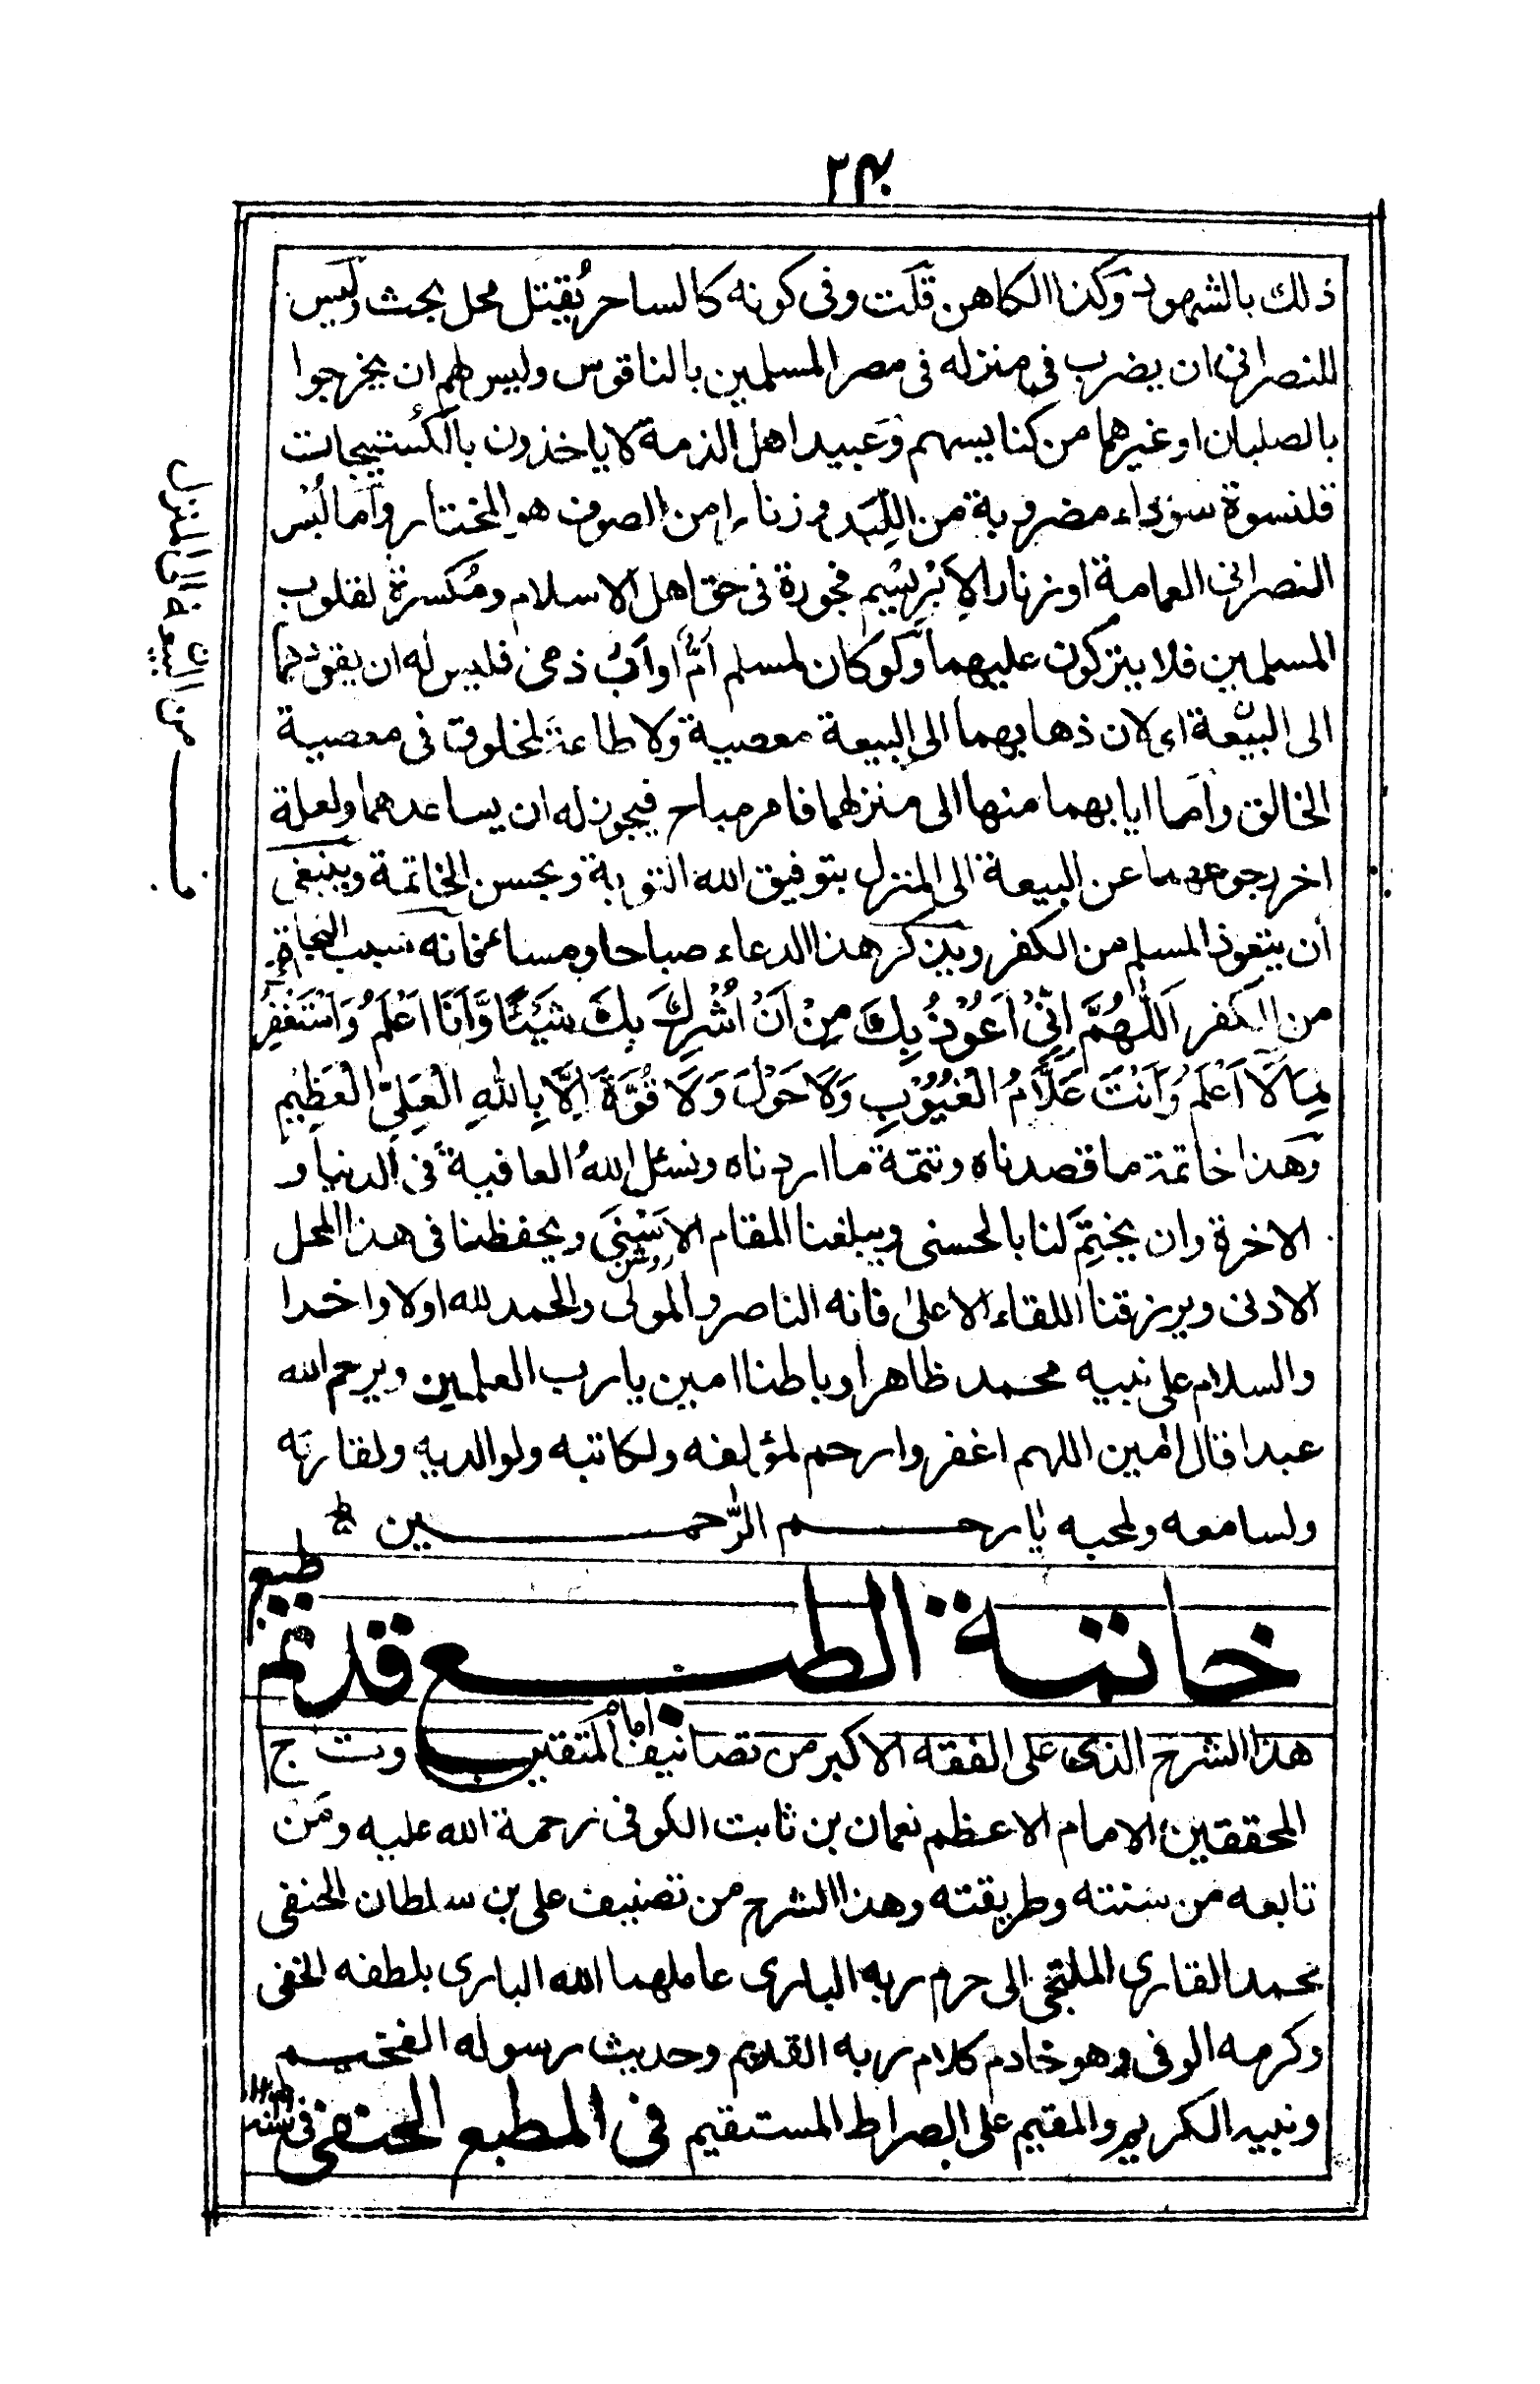 ٢٤٠
ذلك بالشهود وكذا الكاهن قلت وفى كونه كالساحر يُقيتل محل بحث وليس
للنصرانى ان يضرب فى منزله فى مصر المسلمين بالناقوس وليس لهم ان يخرجوا
بالصلبان او غيرهما من كنايسهم وعبيد اهل الذمة لا ياخذون بالكُستيجات
قلنسوة سوداء مضروبة من اللِّبَد و زنارا من الصوف هو المختار وأما لُبْس
النصرانى العمامة او زنار الإبْرِيْسِيم فجورة فى حق اهل الاسلام ومُكسرة لقلوب
المسلمين فلا يتركون عليهما ولو كان لمسلم اُمٌّ او اَبٌ ذمى فليس له ان يقودهما
الى البيعة اى لان ذهابهما الى البيعة معصية ولا طاعة لمخلوق فى معصية
الخالق وأما ايابهما منها الى منزلهما فامر مباح فيجوز له ان يساعدهما ولعلة
اخر رجوعهما عن البيعة الى المنزل بتوفيق الله التوبة وبحسن الخاتمة وينبغى
أن يتعوذ المسلم من الكفر ويذكر هذا الدعاء صباحا ومساء فانه سبب النجاة
من الكفر اَللّٰهُمَّ اِنِّىْ اَعُوْذُ بِكَ مِنْ اَنْ اُشْرِكَ بِكَ شَيْئًا وَّاَنَا اَعْلَمُ وَاَسْتَغْفِرُكَ
لِمَا لَا اَعْلَمُ وَاَنْتَ عَلَّامُ الْغُيُوْبِ وَلَا حَوْلَ وَلَا قُوَّةَ اِلَّا بِاللهِ الْعَلِىِّ الْعَظِيْمِ
وَهذا خاتمة ما قصدناه وتتمة ما اردناه ونسئل اللهُ العافية فى الدنيا و
الاخرة وان يختِمَ لنا بالحسنى ويبلغنا المقام الاَسْنىَ ويحفظنا فى هذا المحل
روشن
الادنى ويرزقنا اللقاء الاعلىٰ فانه الناصر والمولى والحمد لله اولا واخدا
والسلام على نبيه محمد ظاهرا وباطنا امين يا رب العلمين ويرحم الله
عبدا قال امين اللهم اغفر وارحم لمؤلفه ولكاتبه ولوالديه ولقارئه
ولسامعه ولمحبه يا ارحم الرّحمين
خاتمة الطبع قد تم طبع
هذا الشرح الذى على الفقه الاكبر من تصانيف امام المتقين و تاج
المحققين الامام الاعظم نعمان بن ثابت الكوفى رحمة الله عليه ومَن
تابعه من سنته وطريقته وهذا الشرح من تصنيف على بن سلطان الحنفى
محمد القارى الملتجى الى حرم ربه البارى عاملهما الله البارى بلطفه الخفى
وكرمه الوفى وهو خادم كلام ربه القديم وحديث رسوله الفخيم
ونبيه الكريم والمقيم على الصراط المستقيم فى المطبع الحنفى فى سنه
من البيعة الى المنزل